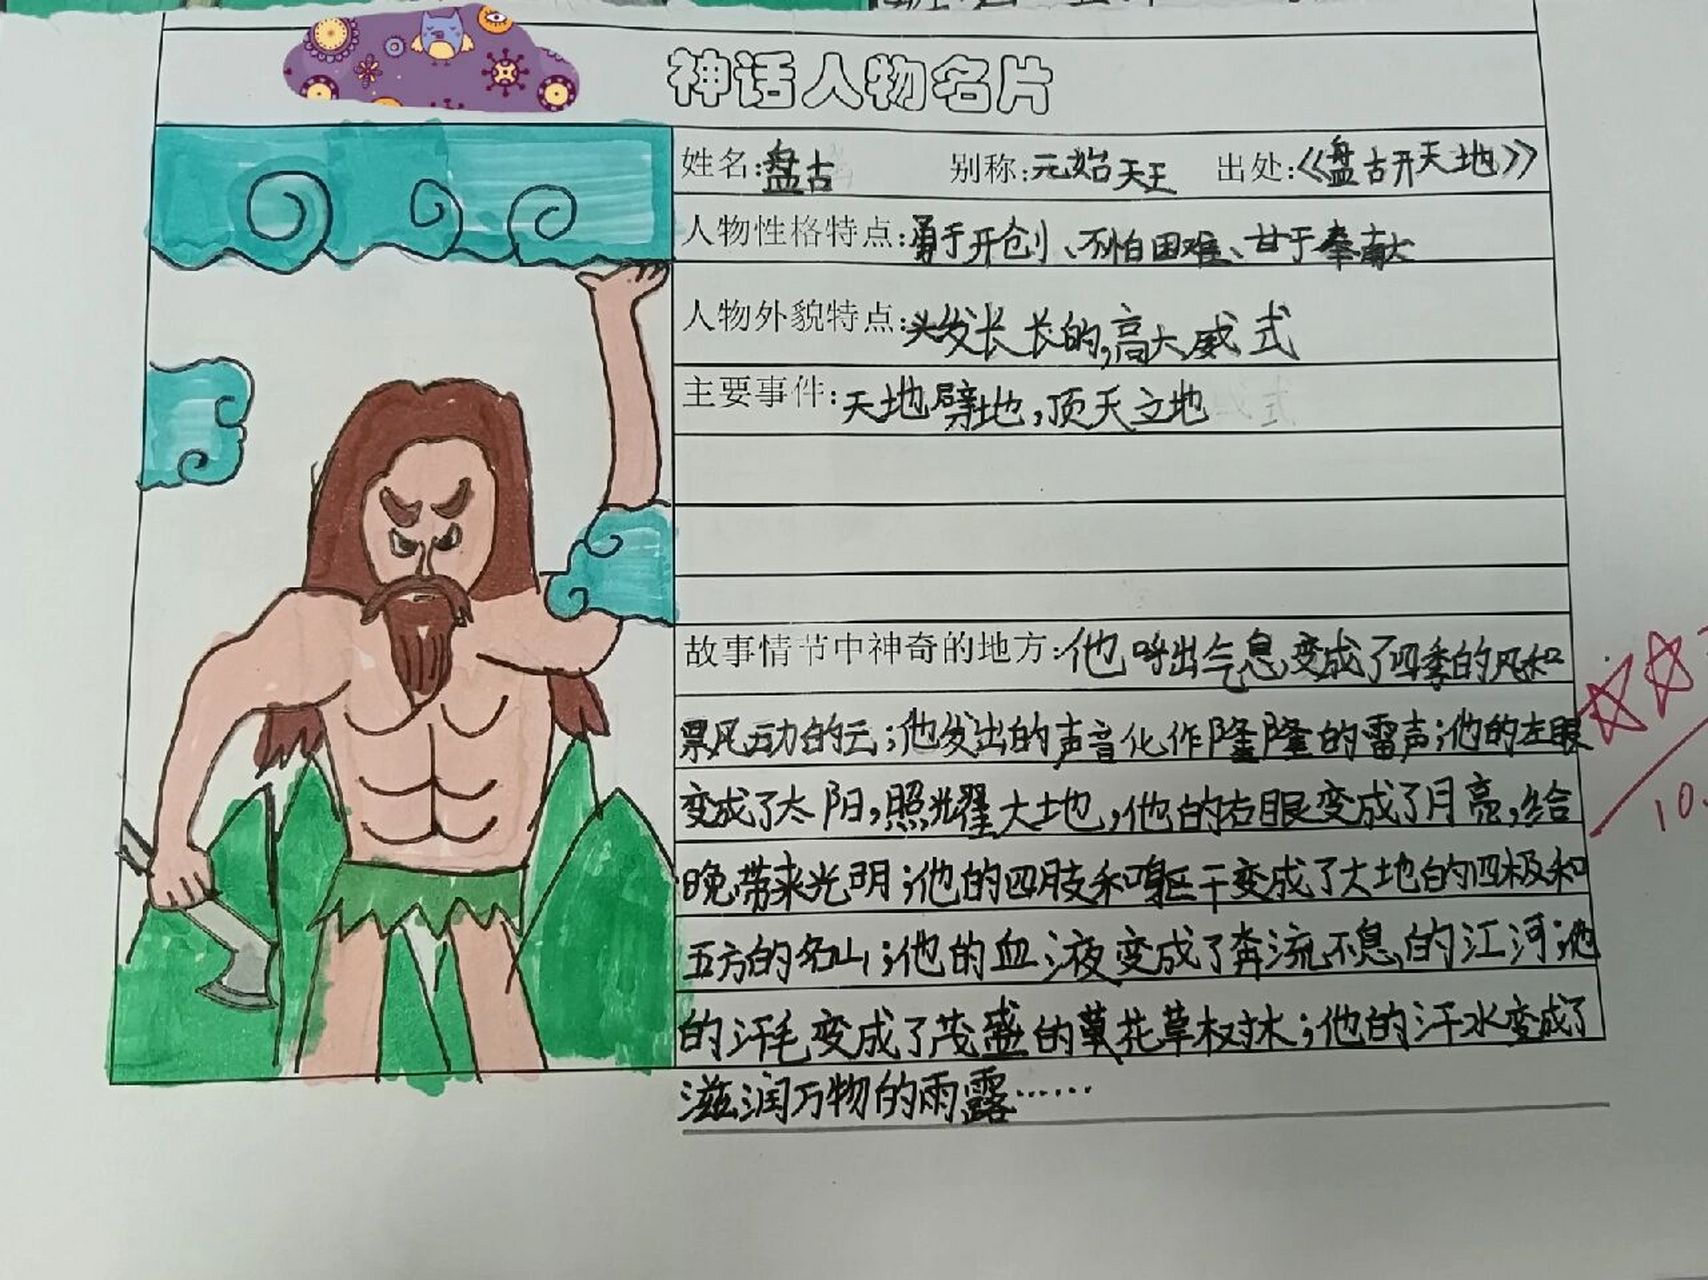 神话人物名片
姓名:盘古 别称:元始天王 出处:《盘古开天地》
人物性格特点:勇于开创、不怕困难、甘于奉献
人物外貌特点:头发长长的,高大威式
主要事件:天地劈地,顶天立地
故事情节中神奇的地方:他呼出气息变成了四季的风和
风动的云;他发出的声音化作隆隆的雷声;他的左眼
变成了太阳,照耀大地,他的右眼变成了月亮,给
晚带来光明;他的四肢和躯干变成了大地的四极和
五方的名山;他的血液变成了奔流不息的江河;他
的汗毛变成了茂盛的花草树木;他的汗水变成了
滋润万物的雨露……
10.